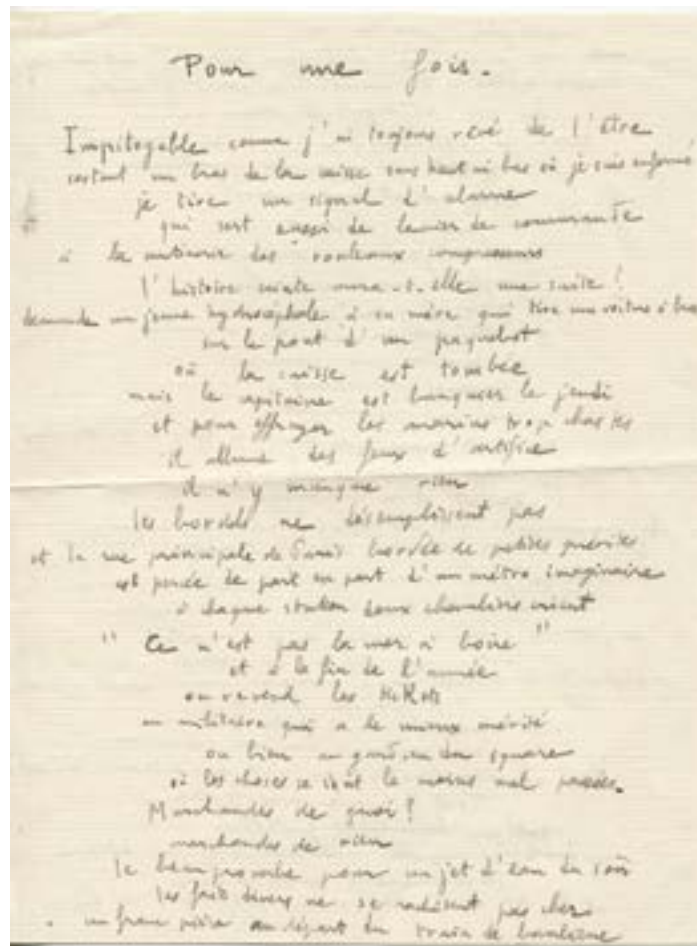 Pour une fois.
Impitoyable comme j'ai toujours rêvé de l'être
sortant un bras de la caisse sans haut ni bas où je suis enfermé
je tire un signal d'alarme
qui sert aussi de levier de commande
à la des rouleaux compresseurs
l'histoire sainte aura-t-elle une suite ?
demande un jeune hydrocéphale à sa mère qui tire une voiture à bras
sur le pont d'un paquebot
où la caisse est tombée
mais le capitaine est banquier le jeudi
et pour effrayer les marins trop chastes
il allume des feux d'artifice
il n'y manque rien
les bordels ne désemplissent pas
et la rue principale de bordée de petites
est percée de part en part d'un métro imaginaire
à chaque station deux chevaliers crient
" Ce n'est pas la mer à boire "
et à la fin de l'année
on revend les tickets
au militaire qui a le mieux mérité
ou bien au gardien du square
où les choses se sont le moins mal passées.
Marchandes de quoi ?
marchandes de rien
le beau pour un jet d'eau du soir
les faits divers ne se vendent pas cher
un franc au départ du train de banlieue